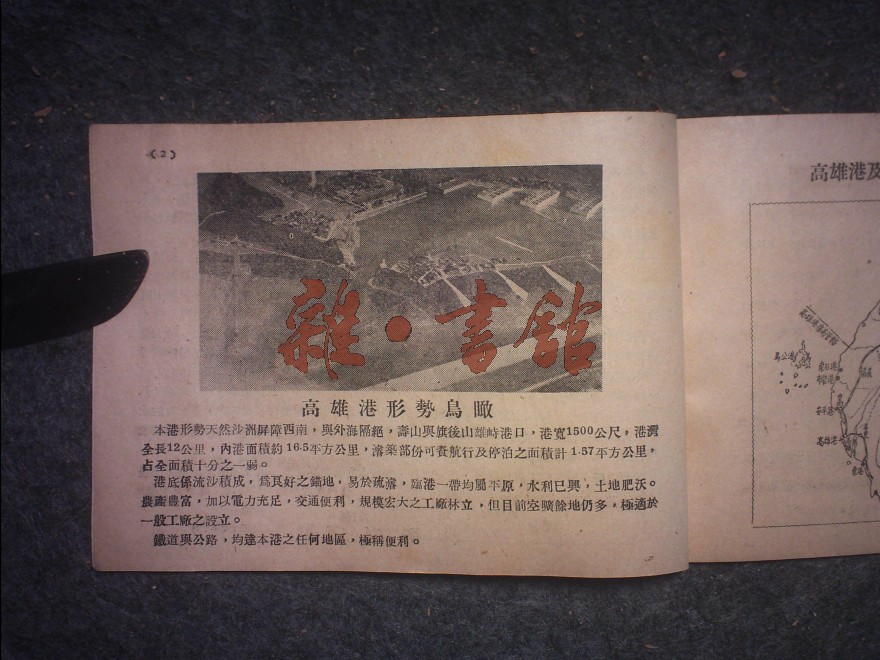 (2)
雜•書館
高雄港形勢鳥瞰
本港形勢天然沙洲屏障西南，與外海隔絕，壽山與旗後山雄峙港口，港寬1500公尺，港灣
全長12公里，內港面積約16.5平方公里，濬築部份可資航行及停泊之面積計1.57平方公里，
占全面積十分之一弱。
港底係流沙積成，爲良好之錨地，易於疏濬，臨港一帶均屬平原，水利已興，土地肥沃。
農產豐富，加以電力充足，交通便利，規模宏大之工廠林立，但目前空曠餘地仍多，極適於
一般工廠之設立。
鐵道與公路，均達本港之任何地區，極稱便利。
高雄港及
馬公
高雄港